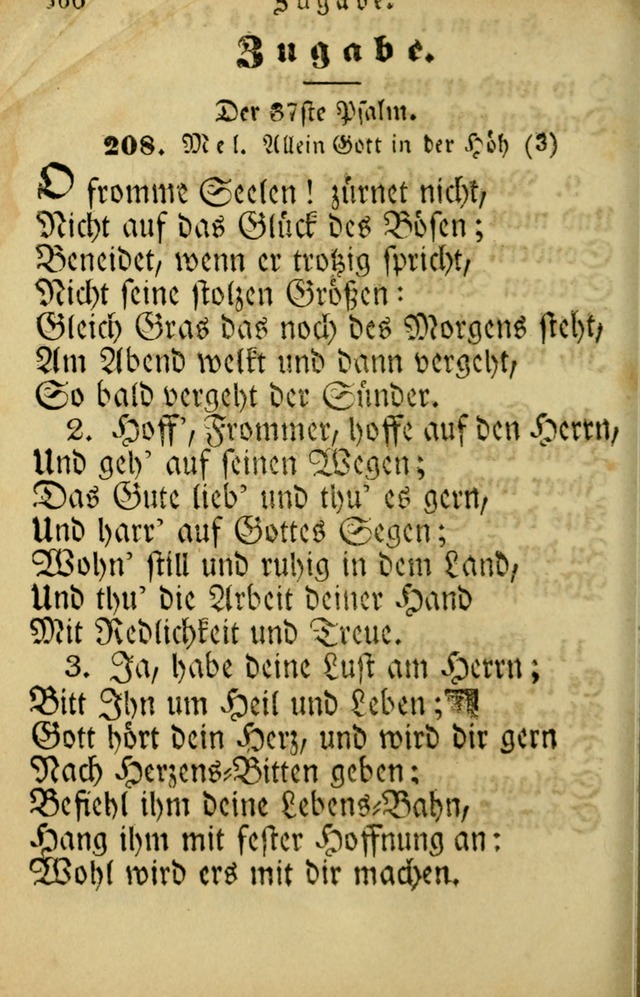 Zugabe.
Zugabe.
Der 37ste Psalm.
208. Mel. Allein Gott in der Höh (3)
O fromme Seelen! zürnet nicht,
Nicht auf das Glück des Bösen;
Beneidet, wenn er trotzig spricht,
Nicht seine stolzen Größen:
Gleich Gras das noch des Morgens steht,
Am Abend welkt und dann vergeht,
So bald vergeht der Sünder.
2. Hoff', Frommer, hoffe auf den Herrn,
Und geh' auf seinen Wegen;
Das Gute lieb' und thu' es gern,
Und harr' auf Gottes Segen;
Wohn' still und ruhig in dem Land,
Und thu' die Arbeit deiner Hand
Mit Redlichkeit und Treue.
3. Ja, habe deine Lust am Herrn;
Bitt Ihn um Heil und Leben;
Gott hört dein Herz, und wird dir gern
Nach Herzens-Bitten geben;
Befiehl ihm deine Lebens-Bahn,
Hang ihm mit fester Hoffnung an:
Wohl wird ers mit dir machen.